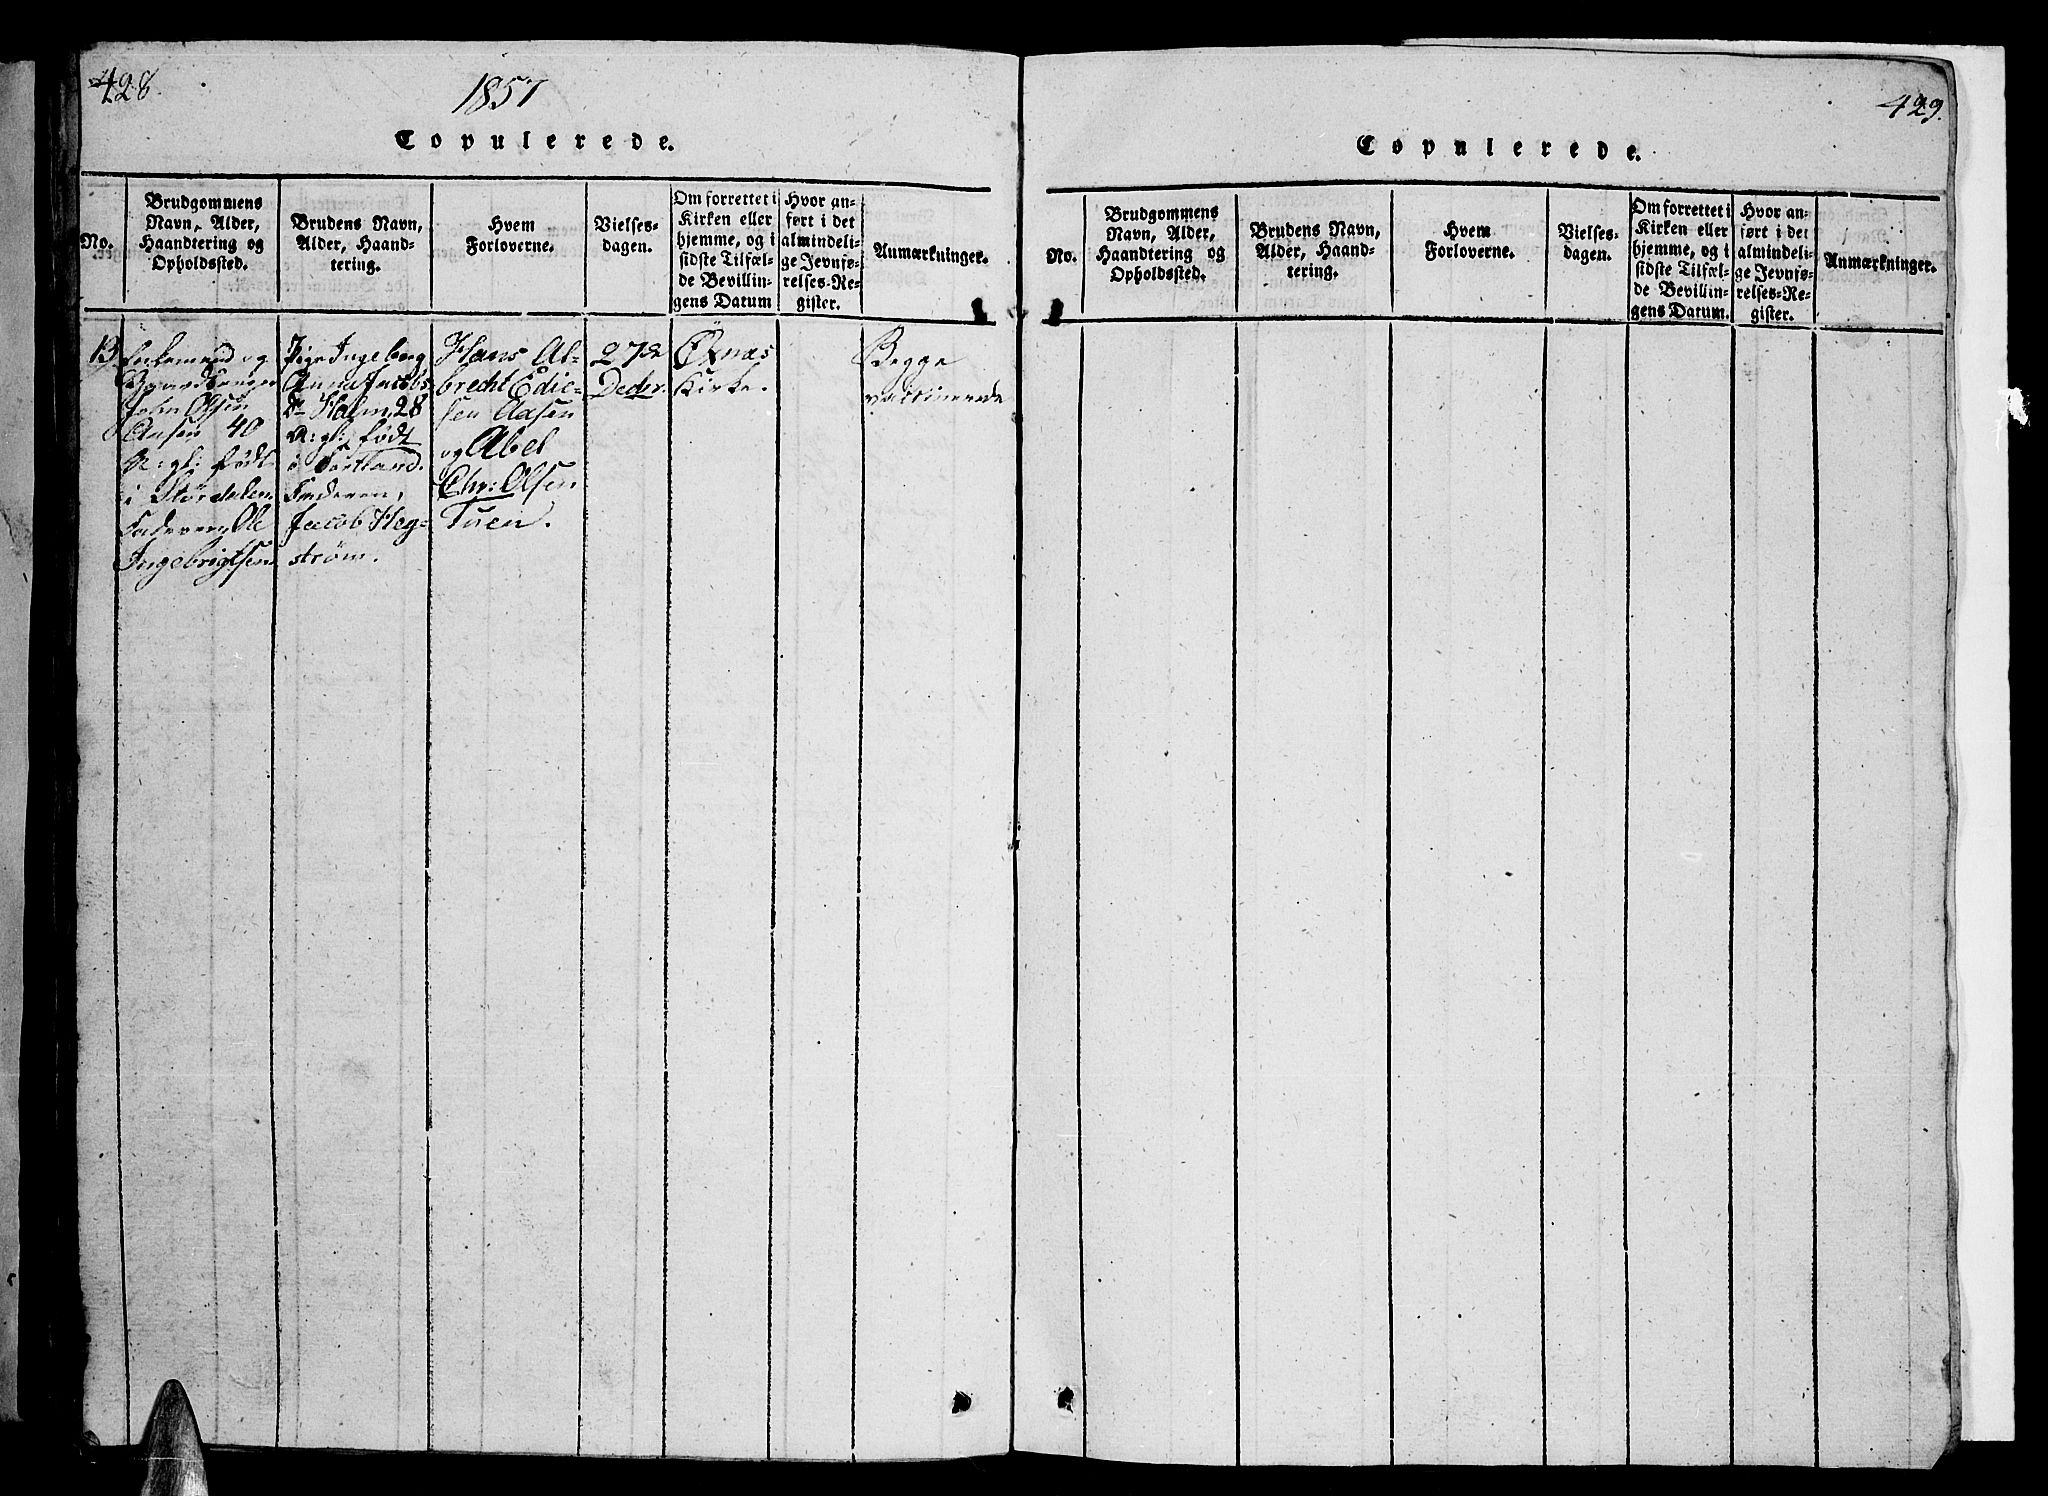 428.
1857
Copulerede.
No.
Brudgommens
Navn, Alder,
Haandtering og
Opholdssted.
Brudens Navn,
Alder, Haand-
tering.
Hvem
Forloverne.
Vielses-
dagen.
Om forrettet i
Kirken eller
hjemme, og i
sidste Tilfæl-
de Bevillin-
gens Datum
Hvor an-
ført i det
almindeli-
ge Jevnfø-
relses-Re-
gister.
Anmærkninger.
13.
og
John Olsen
Aasen 40
A: gl: født
i Størdalen.
Faderen, Ole
Ingebrigtsen
Pige Ingeborg
Anna Jacobs
Dr Holm, 28
A: gl: født
i Sortland.
Faderen,
Jacob Heg-
strøm.
Hans Al-
brecht Edic-
sen Aasen
og Abel
Chr: Olsen
Tuen.
27de
Decbr.
Öxnæs
Kirke.
Begge
vaccinerede
429.
Copulerede.
No.
Brudgommens
Navn, Alder,
Haandtering og
Opholdssted.
Brudens Navn,
Alder, Haand-
tering.
Hvem
Forloverne.
Vielses-
dagen.
Om forrettet i
Kirken eller
hjemme, og i
sidste Tilfæl-
de Bevillin-
gens Datum.
Hvor an-
ført i det
almindeli-
ge Jevnfø-
relses-Re-
gister.
Anmærkninger.